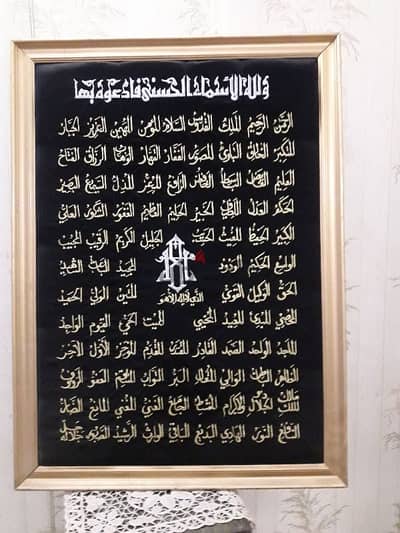 ولله الأسماء الحسنى فادعوه بها
الرحمن الرحيم الملك القدوس السلام المؤمن المهيمن العزيز الجبار
المتكبر الخالق البارئ المصور الغفار القهار الوهاب الرزاق الفتاح
العليم القابض الباسط الخافض الرافع المعز المذل السميع البصير
الحكم العدل اللطيف الخبير الحليم العظيم الغفور الشكور العلي
الكبير الحفيظ المقيت الحسيب الجليل الكريم الرقيب المجيب
الواسع الحكيم الودود المجيد الباعث الشهيد
الحق الوكيل القوي المتين الولي الحميد
المحصي المبدئ المعيد المحيي المميت الحي القيوم الواجد
الماجد الواحد الصمد القادر المقتدر المقدم المؤخر الأول الآخر
الظاهر الباطن الوالي المتعال البر التواب المنتقم العفو الرؤوف
مالك الملك ذو الجلال والإكرام المقسط الجامع الغني المغني المانع الضار
النافع النور الهادي البديع الباقي الوارث الرشيد الصبور جل جلاله